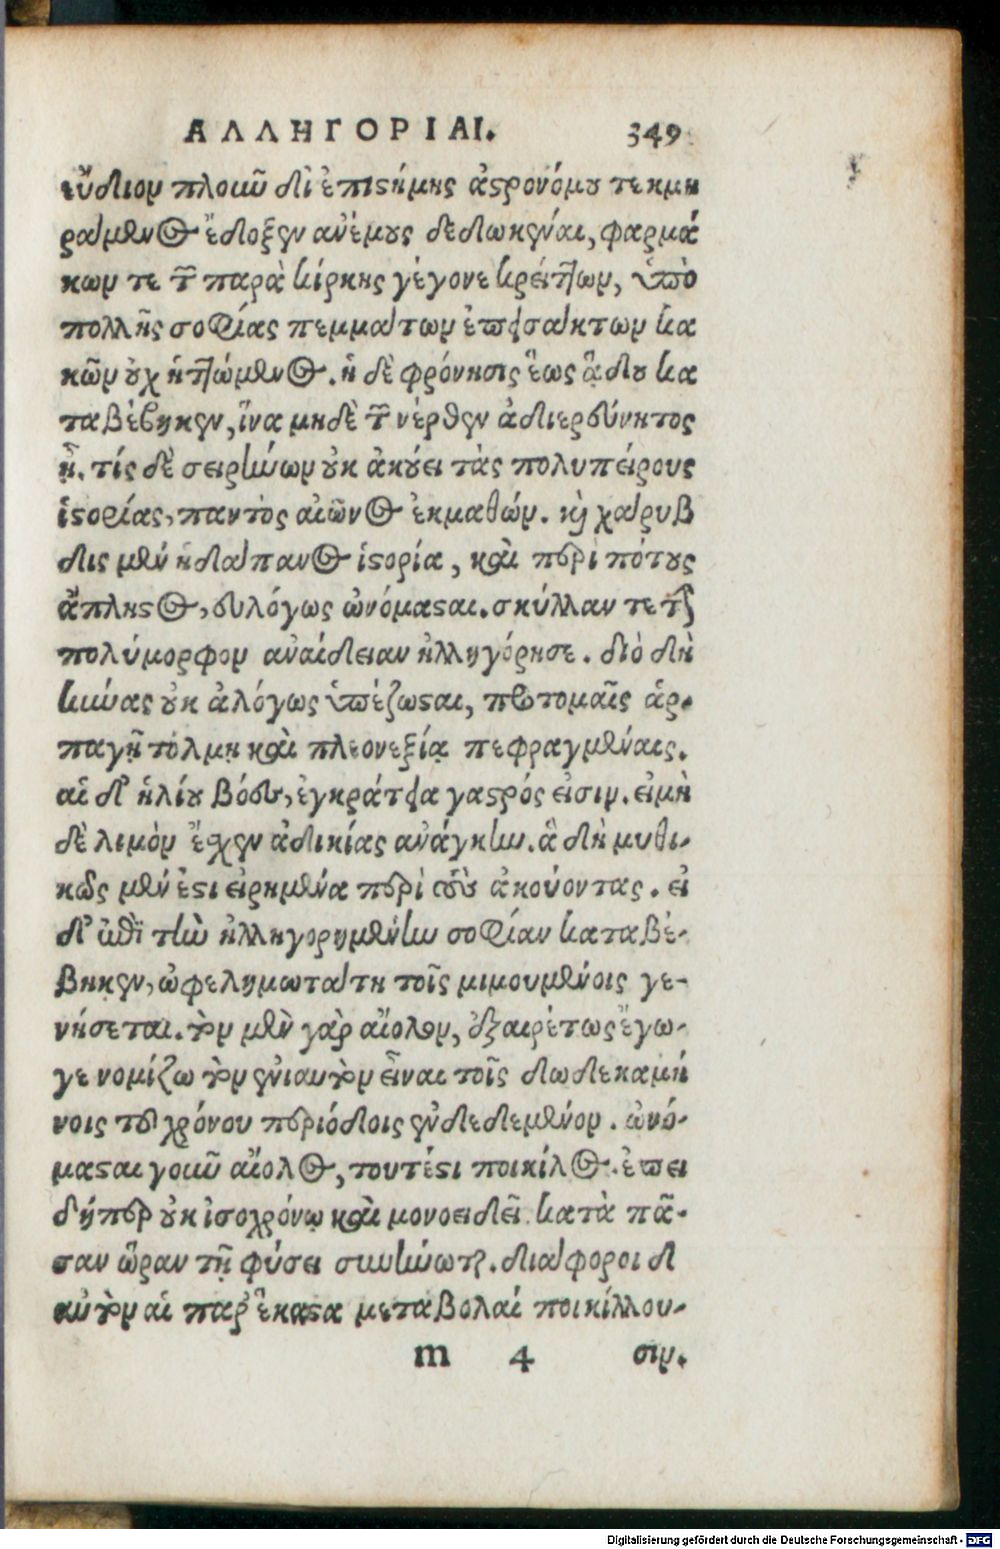 ΑΛΛΗΓΟΡΙΑΙ. 349
εὔδιον πλοῦν δἰ ἐπιστήμης ἀστρονόμου τεκμη
ράμενος ἔδοξεν ἀνέμους δεδωκέναι, φαρμά
κων τε τῶν παρὰ κίρκης γέγονε κρείττων, ὑπὸ
πολλῆς σοφίας πεμμάτων ἐπεισάκτων κα
κῶν οὐχ ἡττώμενος. ἡ δὲ φρόνησις ἕως ᾅδου κα
ταβέβηκεν, ἵνα μηδὲ τῶν νέρθεν ἀδιερεύνητος
ᾖ. τίς δὲ σειρήνων οὐκ ἀκούει τὰς πολυπείρους
ἱστορίας, παντὸς αἰῶνος ἐκμαθών. καὶ χάρυβ
δις μὲν ἡ δάπανος ἱστορία, καὶ περὶ πότους
ἄπληστος, εὐλόγως ὠνόμασται. σκύλλαν τε τὴν
πολύμορφον ἀναίδειαν ἠλληγόρησε. διὸ δὴ
κύνας οὐκ ἀλόγως ὑπέζωσται, προτομαῖς ἁρ-
παγῇ τόλμῃ καὶ πλεονεξίᾳ πεφραγμέναις.
αἱ δ' ἡλίου βόες, ἐγκράτεια γαστρός εἰσιν. εἰ μὴ
δὲ λιμὸν ἔχεν ἀδικίας ἀνάγκην. ἃ δὴ μυθι-
κῶς μέν ἐστι εἰρημένα περὶ τοὺς ἀκούοντας. εἰ
δ' ἐπὶ τὴν ἠλληγορημένην σοφίαν καταβέ-
βηκεν, ὠφελημωτάτη τοῖς μιμουμένοις γε-
νήσεται. τὸν μὲν γὰρ αἴολον, ἐξαιρέτως ἔγω-
γε νομίζω τὸν ἐνιαυτὸν εἶναι τοῖς δωδεκαμή
νοις τοῦ χρόνου περιόδοις ἐνδεδεμένον. ὠνό-
μασται γοῦν αἴολος, τουτέστι ποικίλος. ἐπει
δήπερ οὐκ ἰσοχρόνῳ καὶ μονοειδεῖ κατὰ πᾶ-
σαν ὥραν τῇ φύσει συνήνωται. διάφοροι δ
αὐτὸν αἱ παρ' ἕκαστα μεταβολαὶ ποικίλλου-
m 4 σιν.
Digitalisierung gefördert durch die Deutsche Forschungsgemeinschaft - DFG